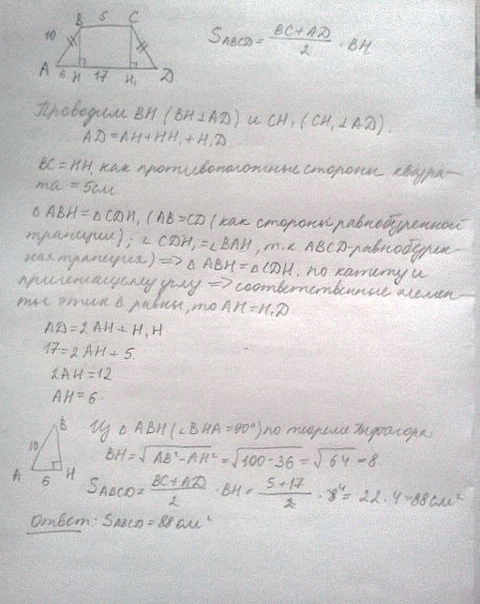 B 5 C
10
A 6 H 17 H₁ D
S ABCD = (BC+AD)/2 · BH
Проводим BH (BH⊥AD) и CH₁ (CH₁⊥AD).
AD=AH+HH₁+H₁D
BC=HH₁ как противоположные стороны квадра-
та = 5см
Δ ABH=Δ CDH₁ (AB=CD (как стороны равнобуренной
трапеции); ∠ CDH₁=∠BAH, т.к ABCD-равнобурен-
ная трапеция) => Δ ABH=Δ CDH₁ по катету и
прилежащему углу => соответственные элемен-
ты этих Δ равны, то AH=H₁D
AD=2AH+H₁H
17=2AH+5
2AH=12
AH=6
B
10
A 6 H
Из Δ ABH (∠BHA=90°) по теореме Пифагора:
BH=√(AB²-AH²)=√(100-36)=√64=8
S ABCD=(BC+AD)/2 · BH=(5+17)/2 · 8⁴= 22·4=88см²
Ответ: S ABCD=88см²